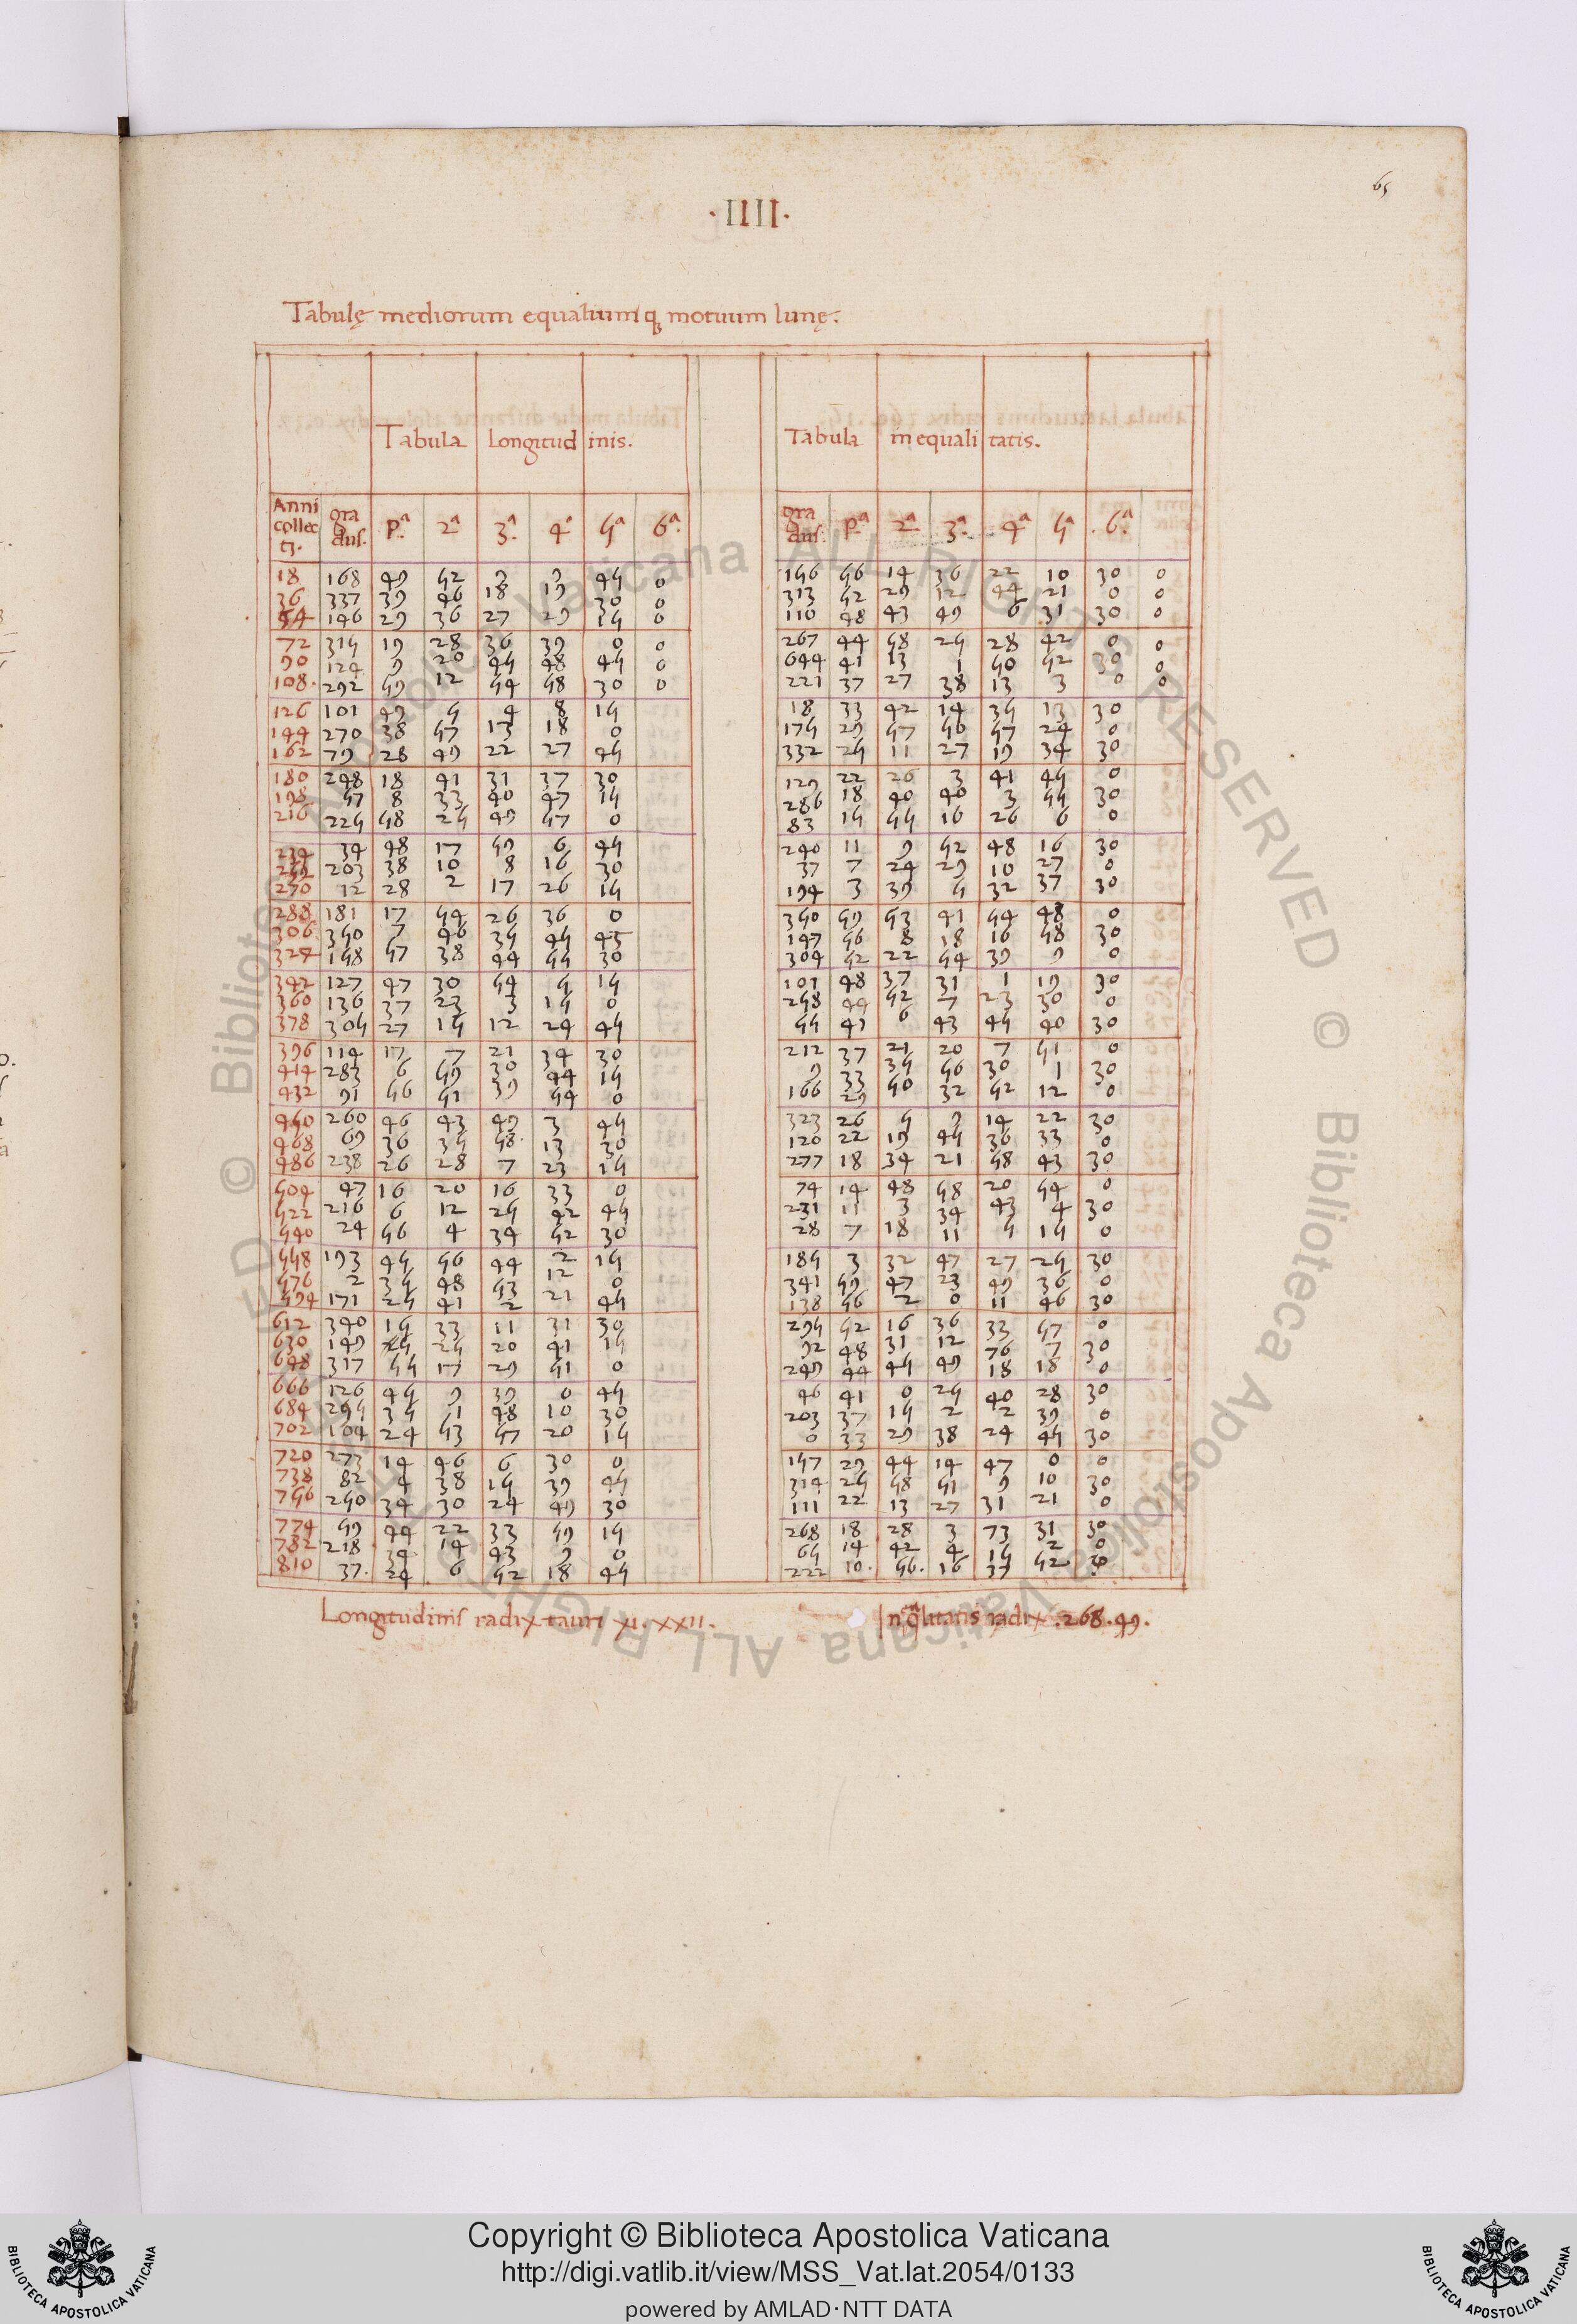 65
·IIII·
Tabulę mediorum equaliumq; motuum lunę.
Tabula Longitudinis. Tabula inequalitatis.
Anni collec tȝ. gra dus. pª 2ª 3ª 4ª 5ª 6ª. gra dus. pª 2ª 3ª 4ª 5ª 6ª.
18 168 49 52 9 9 45 0 156 56 14 36 22 10 30 0
36 337 39 46 18 19 30 0 313 52 29 12 44 21 0 0
54 146 29 36 27 29 15 0 110 48 43 49 6 31 30 0
72 315 19 28 36 39 0 0 267 44 58 25 28 42 0 0
90 124 9 20 45 48 45 0 644 41 13 1 50 52 30 0
108. 292 59 12 54 58 30 0 221 37 27 38 13 3 0 0
126 101 49 5 4 8 15 18 33 42 14 35 13 30
144 270 38 57 13 18 0 175 29 57 50 57 24 0
162 79 28 49 22 27 45 332 25 11 27 19 34 30
180 248 18 41 31 37 30 129 22 26 3 41 45 0
198 57 8 33 40 47 15 286 18 40 40 3 55 30
216 225 58 25 49 57 0 83 15 55 16 26 6 0
234 34 48 17 59 6 45 240 11 9 52 48 16 30
252 203 38 10 8 16 30 37 7 24 29 10 27 0
270 12 28 2 17 26 15 194 3 39 5 32 37 30
288 181 17 54 26 36 0 350 59 53 41 54 48 0
306 350 7 46 35 45 45 147 56 8 18 16 58 30
324 158 57 38 44 55 30 304 52 22 54 39 9 0
342 127 47 30 54 5 15 101 48 37 31 1 19 30
360 136 37 23 3 15 0 258 44 52 7 23 30 0
378 305 27 15 12 24 45 55 41 6 43 45 40 30
396 114 17 7 21 34 30 212 37 21 20 7 51 0
414 283 6 59 30 44 15 9 33 35 56 30 1 30
432 91 56 51 39 54 0 166 29 50 32 52 12 0
450 260 46 43 49 3 45 323 26 5 9 14 22 30
468 69 36 35 58. 13 30 120 22 19 45 36 33 0
486 238 26 28 7 23 15 277 18 34 21 58 43 30
504 47 16 20 16 33 0 74 14 48 58 20 54 0
522 216 6 12 25 42 45 231 11 3 34 43 4 30
540 24 56 4 34 52 30 28 7 18 11 5 15 0
558 193 45 56 44 2 15 185 3 32 47 27 25 30
576 2 35 48 53 12 0 341 59 47 23 49 36 0
594 171 25 41 2 21 45 138 56 2 0 11 46 30
612 340 15 33 11 31 30 295 52 16 36 33 57 0
630 149 25 20 41 15 92 48 31 12 76 7 30
648 317 55 17 29 51 0 249 44 45 49 18 18 0
666 126 45 9 39 0 45 46 41 0 25 40 28 30
684 295 35 1 48 10 30 203 37 15 2 2 39 0
702 104 24 53 57 20 15 0 33 29 38 24 45 30
720 273 14 46 6 30 0 157 29 44 14 47 0 0
738 82 4 38 15 39 45 314 25 58 51 9 10 30
756 250 34 30 24 49 30 111 22 13 27 31 21 0
774 59 44 22 33 59 15 268 18 28 3 73 31 30
782 218 34 14 43 9 0 65 14 42 4 15 2 0
810 37. 24 6 52 18 45 222 10. 56. 16 37 52
Longitudinis radix tauri XI. XXII. Inqlitatis radix .268.49.
Copyright © Biblioteca Apostolica Vaticana
http://digi.vatlib.it/view/MSS_Vat.lat.2054/0133
powered by AMLAD·NTT DATA
BIBLIOTECA APOSTOLICA VATICANA
BIBLIOTECA APOSTOLICA VATICANA